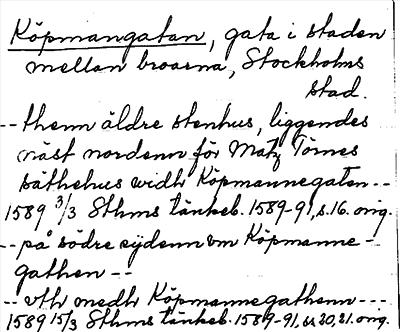 Köpmangatan, gata i staden
mellan broarna, Stockholms
stad.
-- themn äldre stenhus, liggendes
näst nordenn för Matz Törnes
säthehus widh Köpmannegaten --
1589 3/3 Sthms tänkeb. 1589-91, s. 16. orig.
-- på södre sydenn om Köpmanne-
gathen --
-- vth medh Köpmannegathenn ---
1589 15/3 Sthms tänkeb. 1589-91, ss 20, 21. orig.